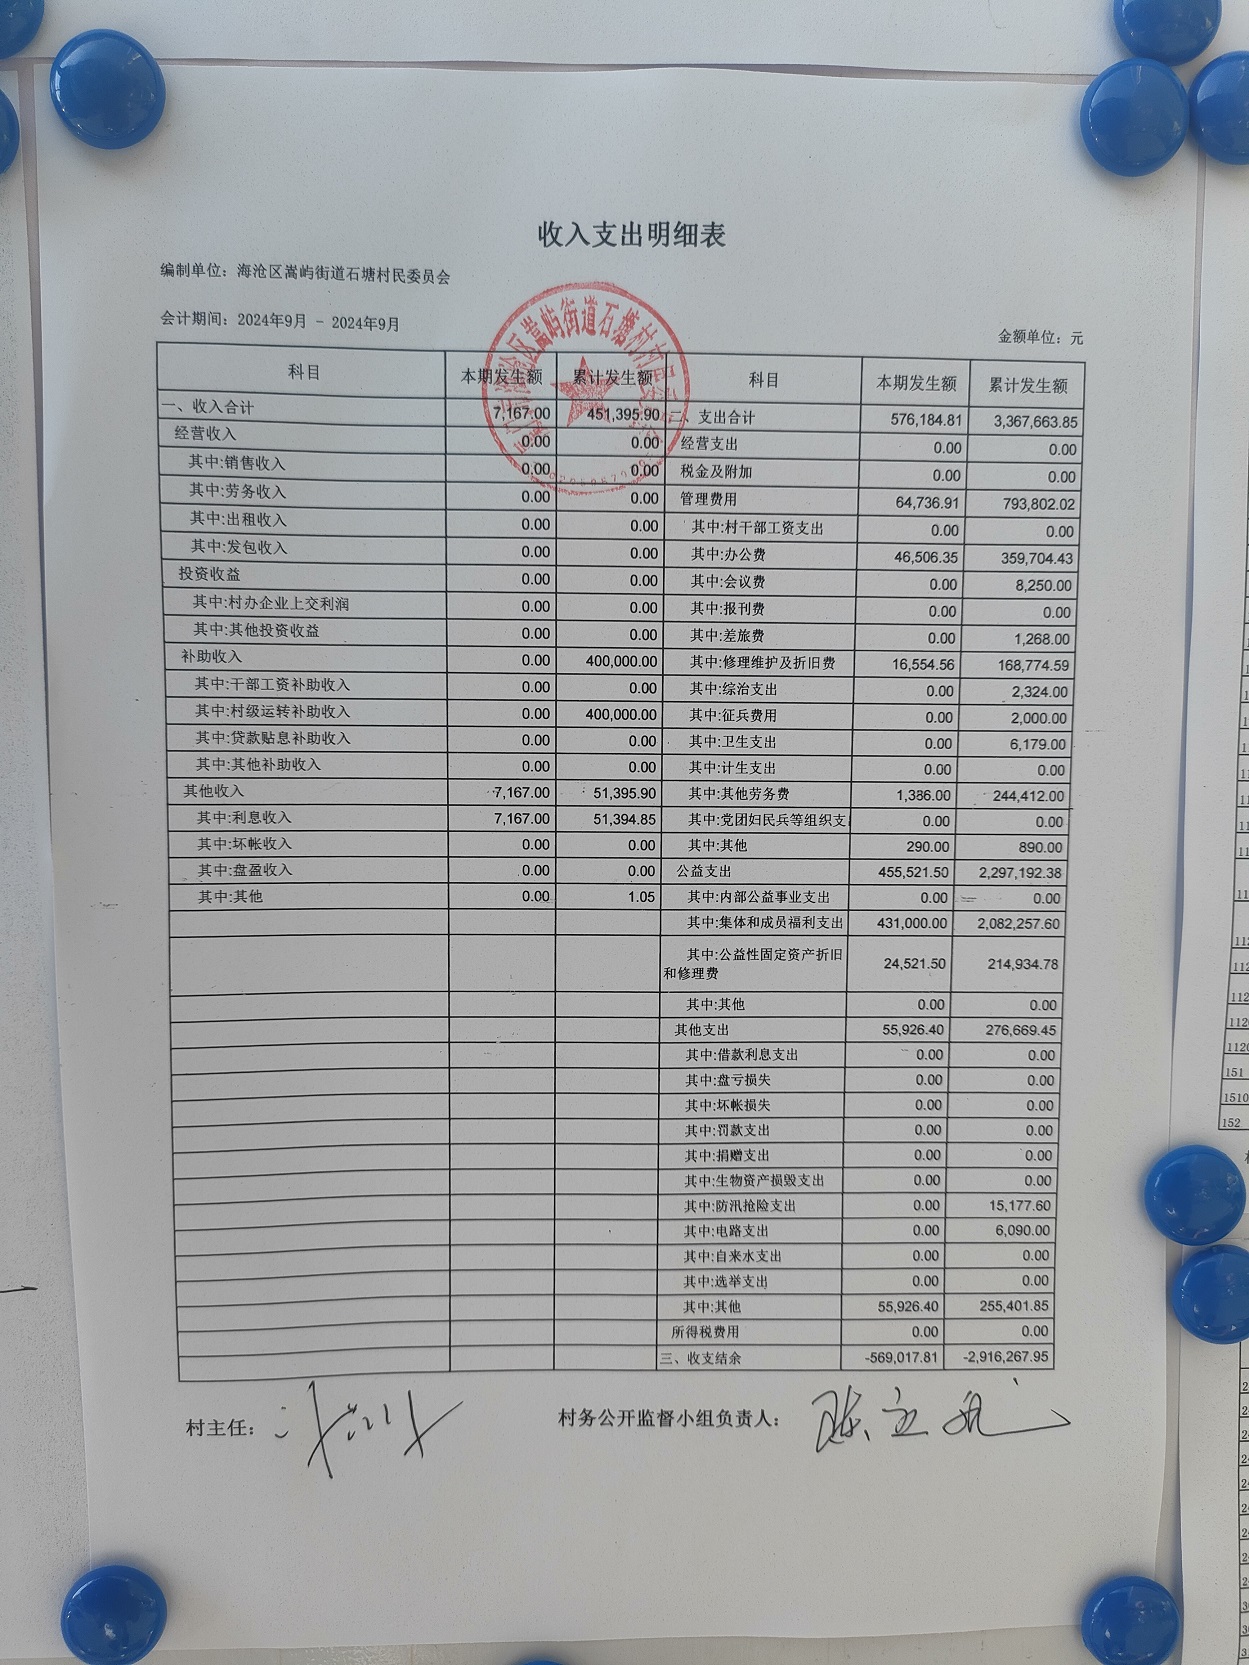 收入支出明细表
编制单位：海沧区嵩屿街道石塘村民委员会
会计期间：2024年9月 - 2024年9月 金额单位：元
科目 本期发生额 累计发生额 科目 本期发生额 累计发生额
一、收入合计 7,167.00 451,395.90 二、支出合计 576,184.81 3,367,663.85
经营收入 0.00 0.00 经营支出 0.00 0.00
其中:销售收入 0.00 0.00 税金及附加 0.00 0.00
其中:劳务收入 0.00 0.00 管理费用 64,736.91 793,802.02
其中:出租收入 0.00 0.00 其中:村干部工资支出 0.00 0.00
其中:发包收入 0.00 0.00 其中:办公费 46,506.35 359,704.43
投资收益 0.00 0.00 其中:会议费 0.00 8,250.00
其中:村办企业上交利润 0.00 0.00 其中:报刊费 0.00 0.00
其中:其他投资收益 0.00 0.00 其中:差旅费 0.00 1,268.00
补助收入 0.00 400,000.00 其中:修理维护及折旧费 16,554.56 168,774.59
其中:干部工资补助收入 0.00 0.00 其中:综治支出 0.00 2,324.00
其中:村级运转补助收入 0.00 400,000.00 其中:征兵费用 0.00 2,000.00
其中:贷款贴息补助收入 0.00 0.00 其中:卫生支出 0.00 6,179.00
其中:其他补助收入 0.00 0.00 其中:计生支出 0.00 0.00
其他收入 7,167.00 51,395.90 其中:其他劳务费 1,386.00 244,412.00
其中:利息收入 7,167.00 51,394.85 其中:党团妇民兵等组织支 0.00 0.00
其中:坏帐收入 0.00 0.00 其中:其他 290.00 890.00
其中:盘盈收入 0.00 0.00 公益支出 455,521.50 2,297,192.38
其中:其他 0.00 1.05 其中:内部公益事业支出 0.00 0.00
其中:集体和成员福利支出 431,000.00 2,082,257.60
其中:公益性固定资产折旧
和修理费 24,521.50 214,934.78
其中:其他 0.00 0.00
其他支出 55,926.40 276,669.45
其中:借款利息支出 0.00 0.00
其中:盘亏损失 0.00 0.00
其中:坏帐损失 0.00 0.00
其中:罚款支出 0.00 0.00
其中:捐赠支出 0.00 0.00
其中:生物资产损毁支出 0.00 0.00
其中:防汛抢险支出 0.00 15,177.60
其中:电路支出 0.00 6,090.00
其中:自来水支出 0.00 0.00
其中:选举支出 0.00 0.00
其中:其他 55,926.40 255,401.85
所得税费用 0.00 0.00
三、收支结余 -569,017.81 -2,916,267.95
村主任： 村务公开监督小组负责人：